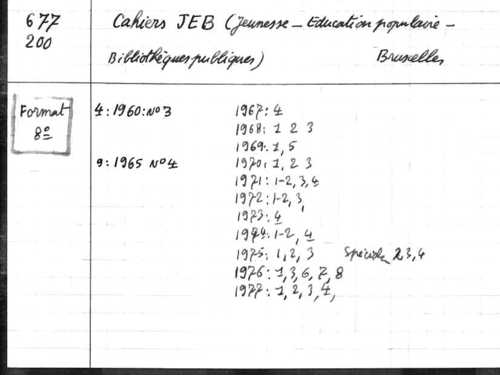 677
200
Cahiers JEB (jeunesse - Education populaire -
Bibliothèques publiques) Bruxelles
Format
8º
4: 1960: Nº 3
9: 1965 Nº 4
1967: 4
1968: 1 2 3
1969: 1, 5
1970: 1, 2 3
1971: 1-2, 3, 4
1972: 1-2, 3,
1973: 4
1974: 1-2, 4
1975: 1, 2, 3 2, 3, 4
1976: 1, 3, 6, 7, 8
1977: 1, 2, 3, 4,